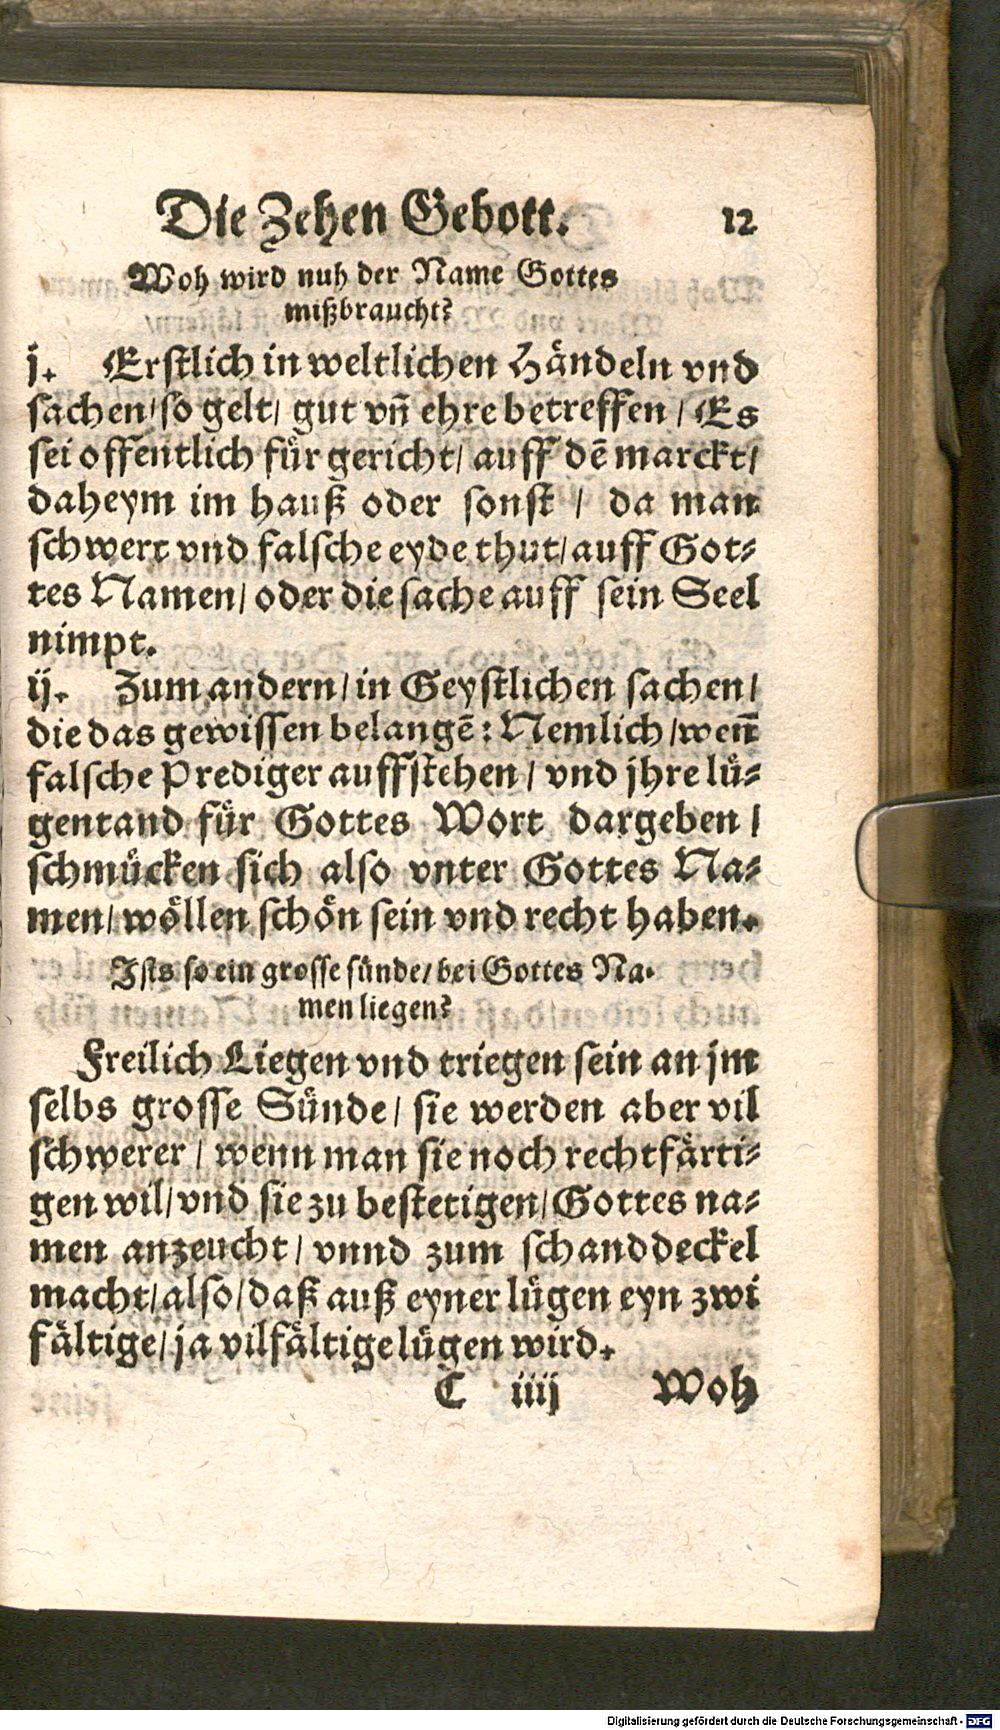 Die Zehen Gebott. 12
Woh wird nuh der Name Gottes
mißbraucht?
j. Erstlich in weltlichen Händeln vnd
sachen/so gelt/ gut vñ ehre betreffen / Es
sei offentlich für gericht/ auff dē marckt/
daheym im hauß oder sonst / da man
schwert vnd falsche eyde thut/auff Got⸗
tes Namen/ oder die sache auff sein Seel
nimpt.
ij. Zum andern/ in Geystlichen sachen/
die das gewissen belangē: Nemlich/wen̄
falsche Prediger auffstehen/ vnd jhre lü⸗
gentand für Gottes Wort dargeben /
schmücken sich also vnter Gottes Na⸗
men/ wöllen schön sein vnd recht haben.
Ists so ein grosse sünde/bei Gottes Na⸗
men liegen?
Freilich Liegen vnd triegen sein an jm
selbs grosse Sünde/ sie werden aber vil
schwerer / wenn man sie noch rechtfärti⸗
gen wil/vnd sie zu bestetigen/Gottes na⸗
men anzeucht/ vnnd zum schanddeckel
macht/also/daß auß eyner lügen eyn zwi
fältige/ja vilfältige lügen wird.
C iiij Woh
Digitalisierung gefördert durch die Deutsche Forschungsgemeinschaft - DFG